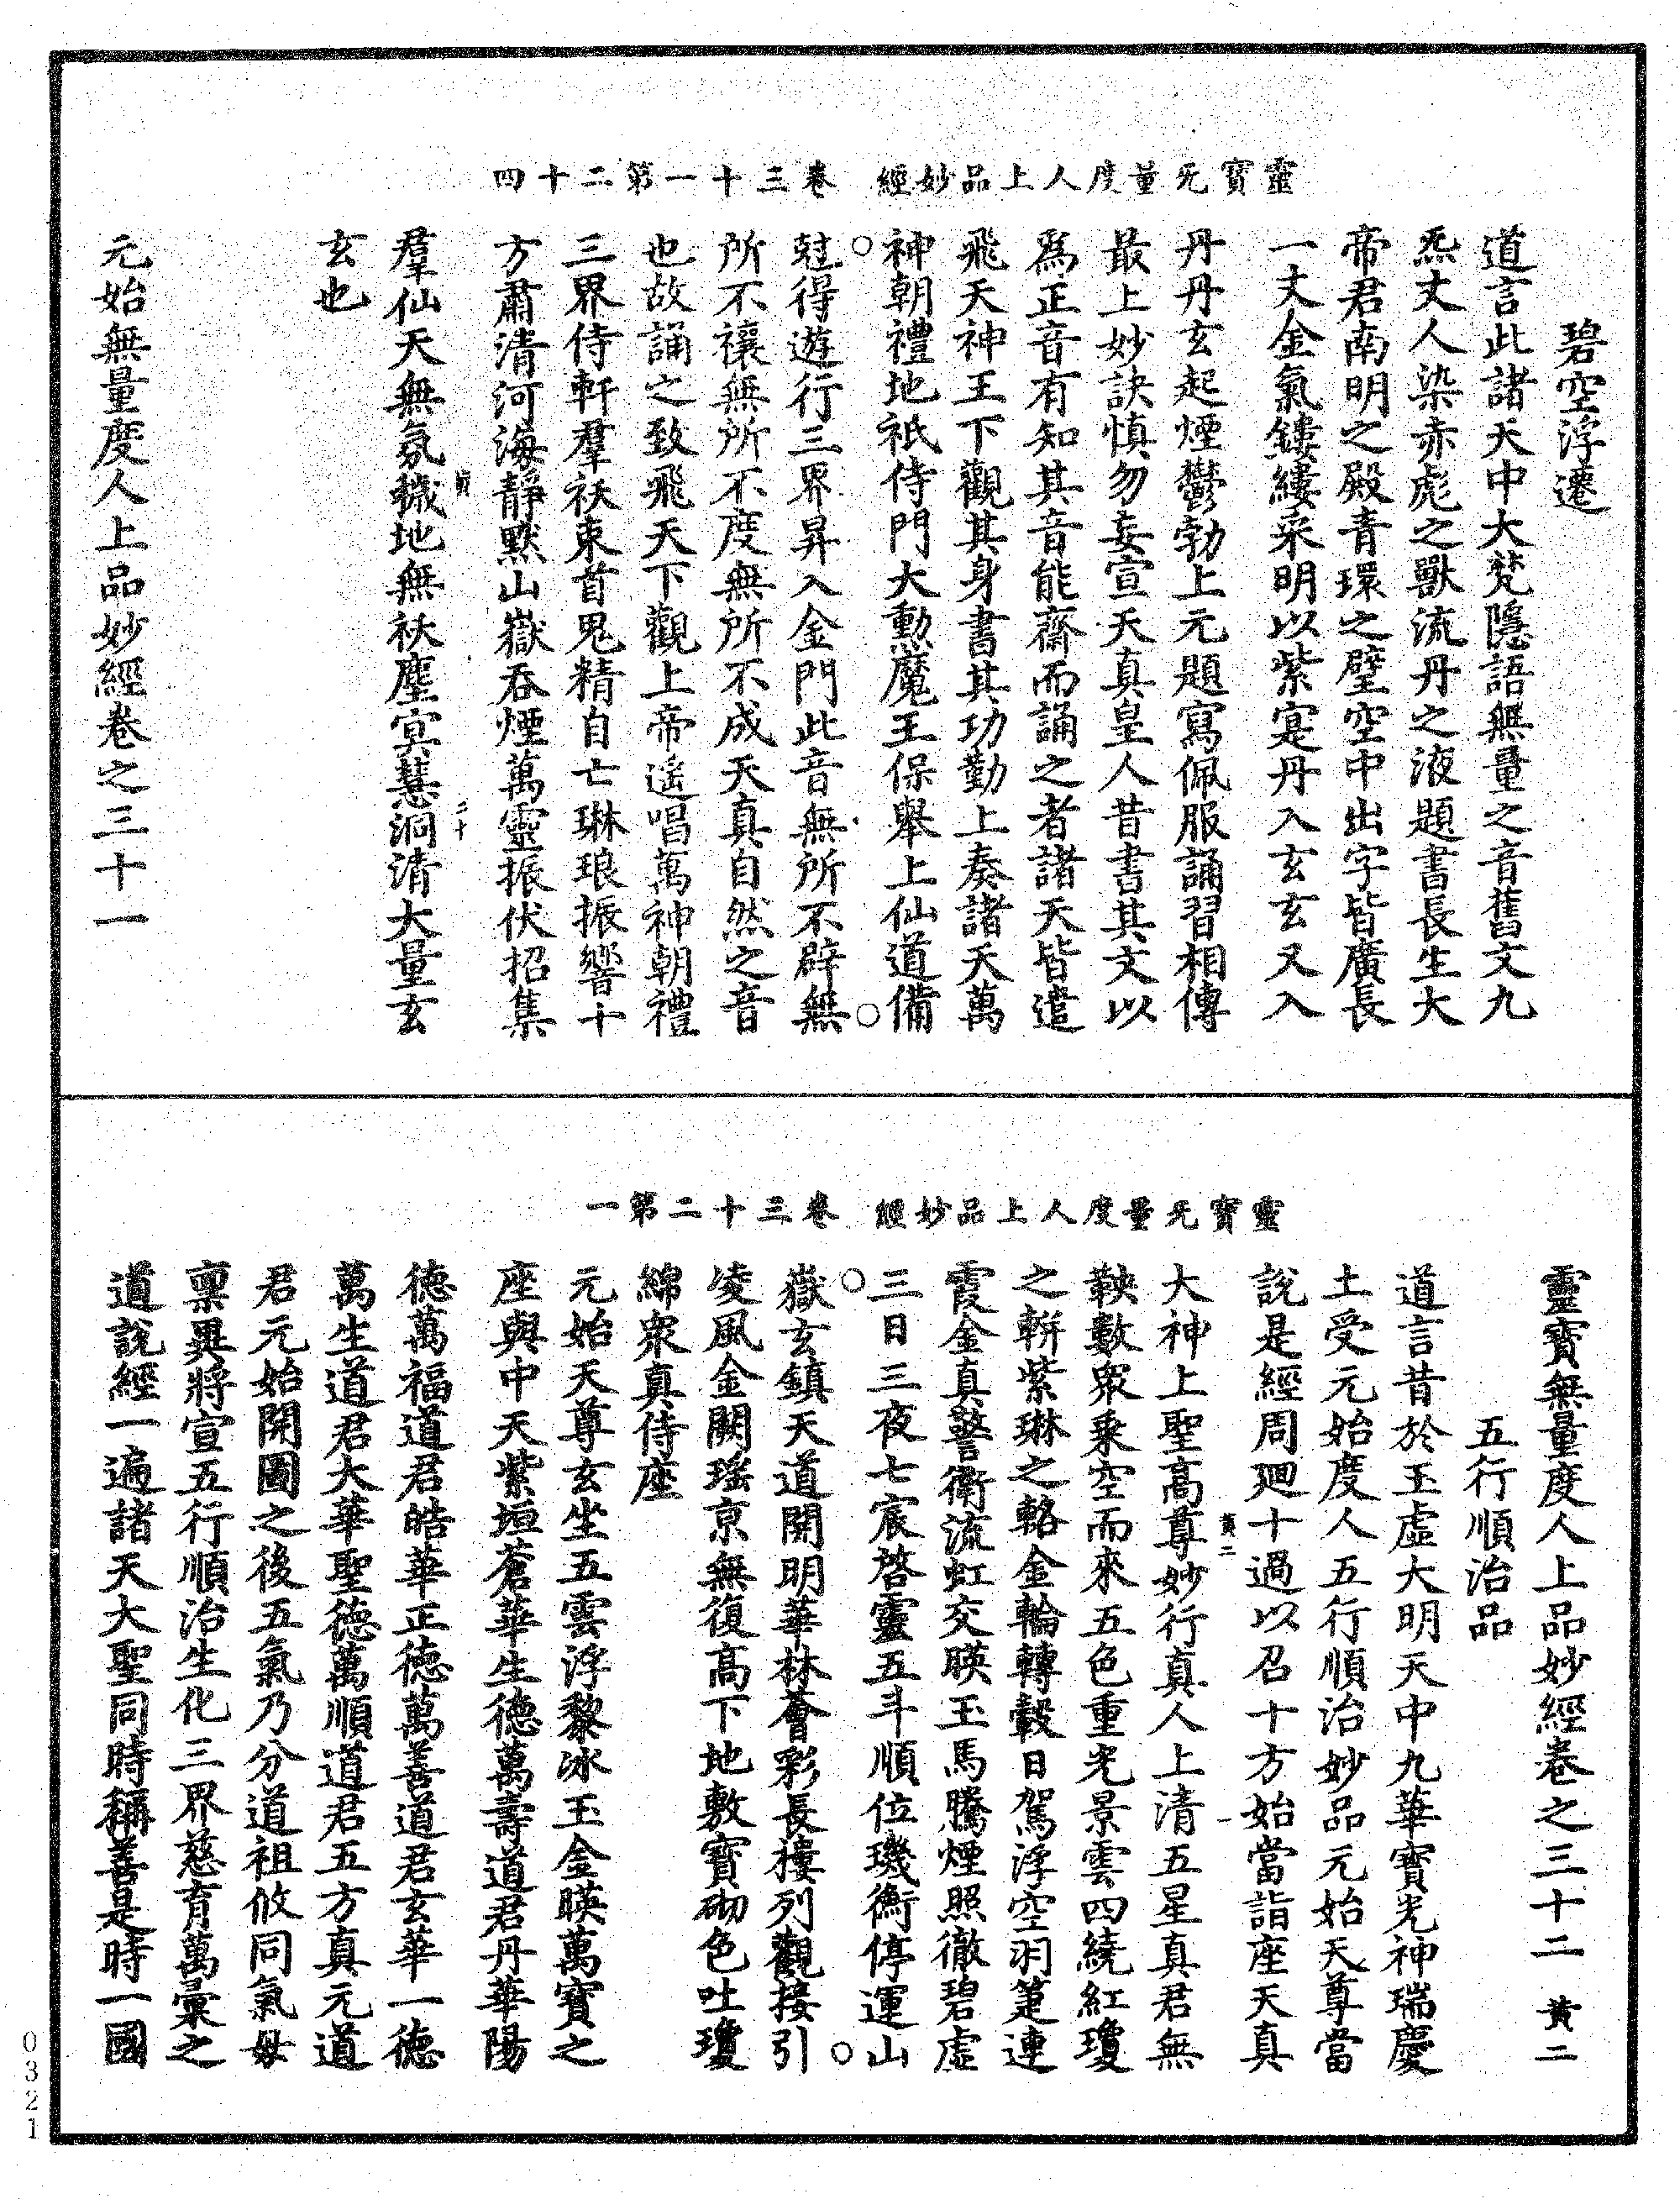 靈寶无量度人上品妙經　卷三十一第二十四
碧空浮遷
道言此諸天中大梵隱語無量之音舊文九
炁丈人染赤彪之獸流丹之液題書長生大
帝君南明之殿青環之壁空中出字皆廣長
一丈金氣鏤縷采明以紫寔丹入玄玄又入
丹丹玄起煙鬱勃上元題寫佩服誦習相傳
最上妙訣慎勿妄宣天真皇人昔書其文以
為正音有知其音能齋而誦之者諸天皆遣
飛天神王下觀其身書其功勤上奏諸天萬
神朝禮地祇侍門大勲魔王保舉上仙道備
尅得遊行三界昇入金門此音無所不辟無
所不禳無所不度無所不成天真自然之音
也故誦之致飛天下觀上帝遥唱萬神朝禮
三界侍軒羣祅束首鬼精自亡琳琅振響十
方肅清河海靜默山嶽吞煙萬靈振伏招集
羣仙天無氛穢地無祅塵冥慧洞清大量玄
玄也
元始無量度人上品妙經卷之三十一
靈寶无量度人上品妙經　卷三十二第一
靈寶無量度人上品妙經卷之三十二　黄二
五行順治品
道言昔於玉虛大明天中九華寶光神瑞慶
土受元始度人五行順治妙品元始天尊當
說是經周廻十過以召十方始當詣座天真
黄二　一
大神上聖高尊妙行真人上清五星真君無
鞅數衆乗空而來五色重光景雲四繞紅瓊
之軿紫琳之輅金輪轉轂日駕浮空羽蓮連
霞金真警衛流虹交暎玉馬騰煙照徹碧虛
三日三夜七宸啓靈五斗順位璣衡停運山
嶽玄鎮天道開明華林薈彩長褸列觀接引
凌風金闕瑶京無復高下地敷寶砌色吐瓊
綿衆真侍座
元始天尊玄坐五雲浮黎冰玉金暎萬寶之
座與中天紫垣蒼華生德萬壽道君丹華陽
德萬福道君皓華正德萬善道君玄華一德
萬生道君大華聖德萬順道君五方真元道
君元始開圖之後五氣乃分道祖攸同氣母
禀異將宣五行順治生化三界慈育萬彚之
道說經一遍諸天大聖同時稱善是時一國
0321